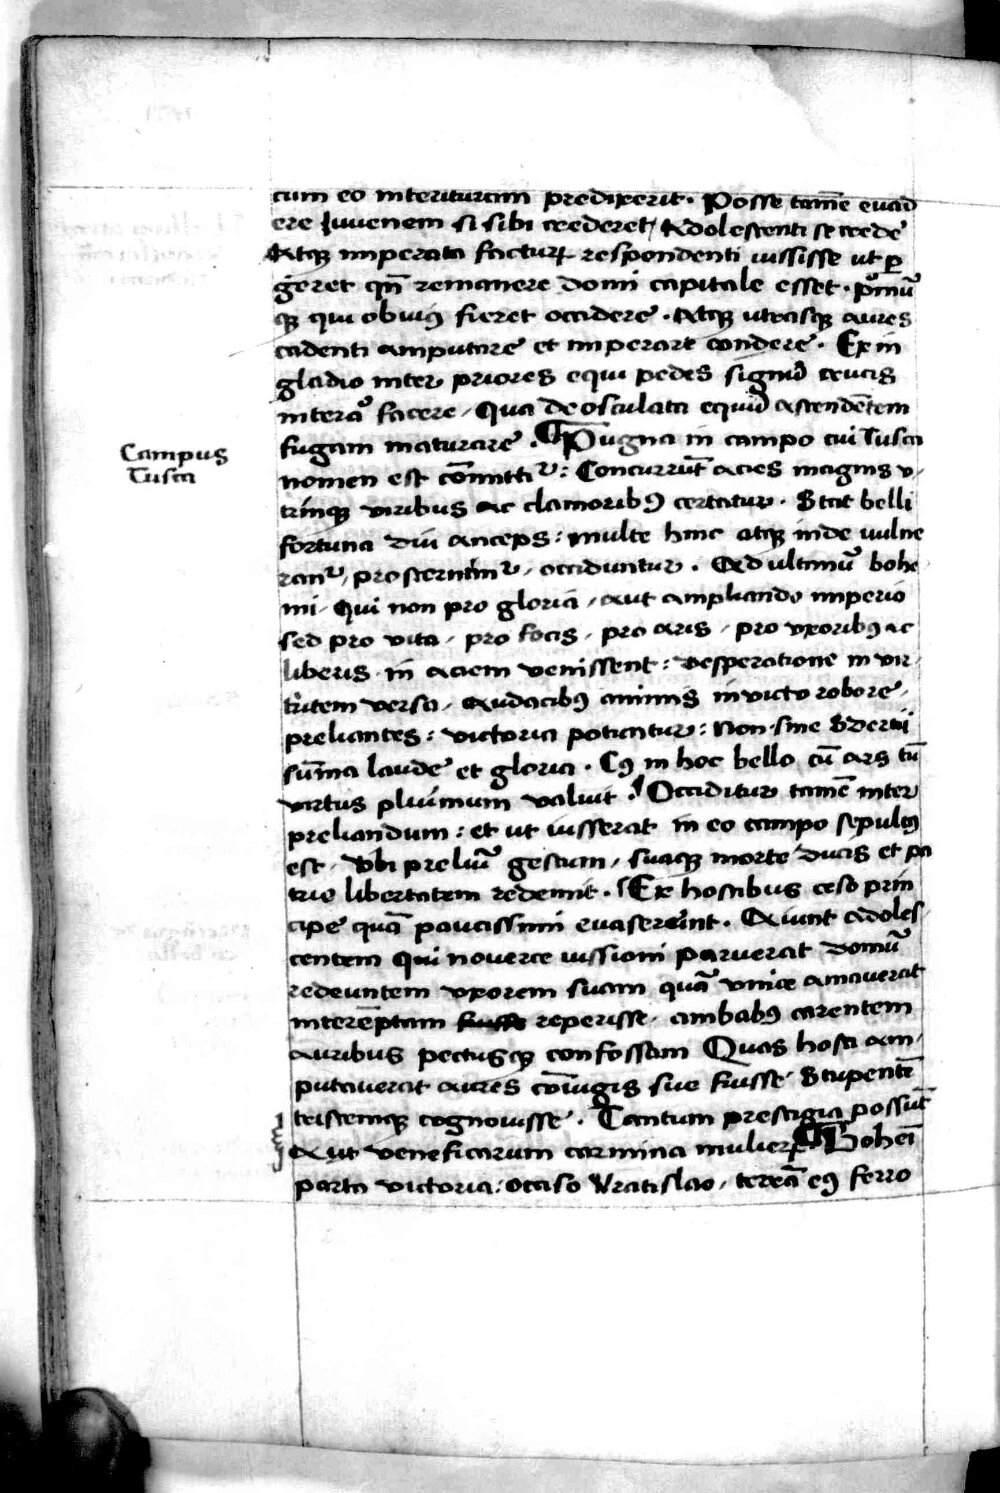 cum eo interituram predixerit. Posse tamē evad
ere Juvenem si sibi crederet, Adolescenti se crede
Atqꝫ imperata facturū respondenti iussisse ut ꝑ
geret qñ remanere domi capitale esset. pͥmū
qꝫ qui obviꝰ fieret occidere. Atqꝫ utrasqꝫ aures
cadenti amputare et imperare condere. Exin
gladio inter priores equi pedes signū crucis
in terra facere, Qua deosculata equū ascendētem
fugam maturare. Pugna in campo cui Tusca
Campus
Tusca
nomen est cōmittiͬ: Concurrūt acies magnis v,
trinqꝫ viribus ac clamoribꝰ certatur. Stat belli
fortuna diu anceps: multe hinc atqꝫ inde vulne
ranͬ, prosternūnͬ, occiduntur. Ad ultimū bohe
mi, Qui non pro gloria, aut ampliando imperio
sed pro vita, pro focis, pro aris, pro uxoribꝰ ac
liberis in aciem venissent: desperatione in vir,
tutem versa, Audacibꝰ animis invicto robore,
preliantes: victoria potiuntur: Non sine Sdernii
sūma laude et gloria. Cꝰ in hoc bello cū ars tū
virtus plurimum valuit. Occiditur tamē inter
preliandum: et ut iusserat in eo campo sepultꝰ
est, Ubi preliū gestum, suaqꝫ morte ducis et pa
trie libertatem redemit. Ex hostibus ceso prin
cipe quā paucissimi evaserunt. Aiunt adoles,
centem Qui noverce iussioni paruerat domū
redeuntem uxorem suam quā unice amaverat
interēptam reperisse, ambabꝰ carentem
auribus pectusqꝫ confossam Quas hosti am,
putaverat aures cōiugis sue fuisse Stupentē
tristemqꝫ cognovisse. Tantum prestigia possūt
Aut veneficarum carmina mulierꝝ Bohēi
parta victoria: occiso Vratislao, terrā eꝰ ferro